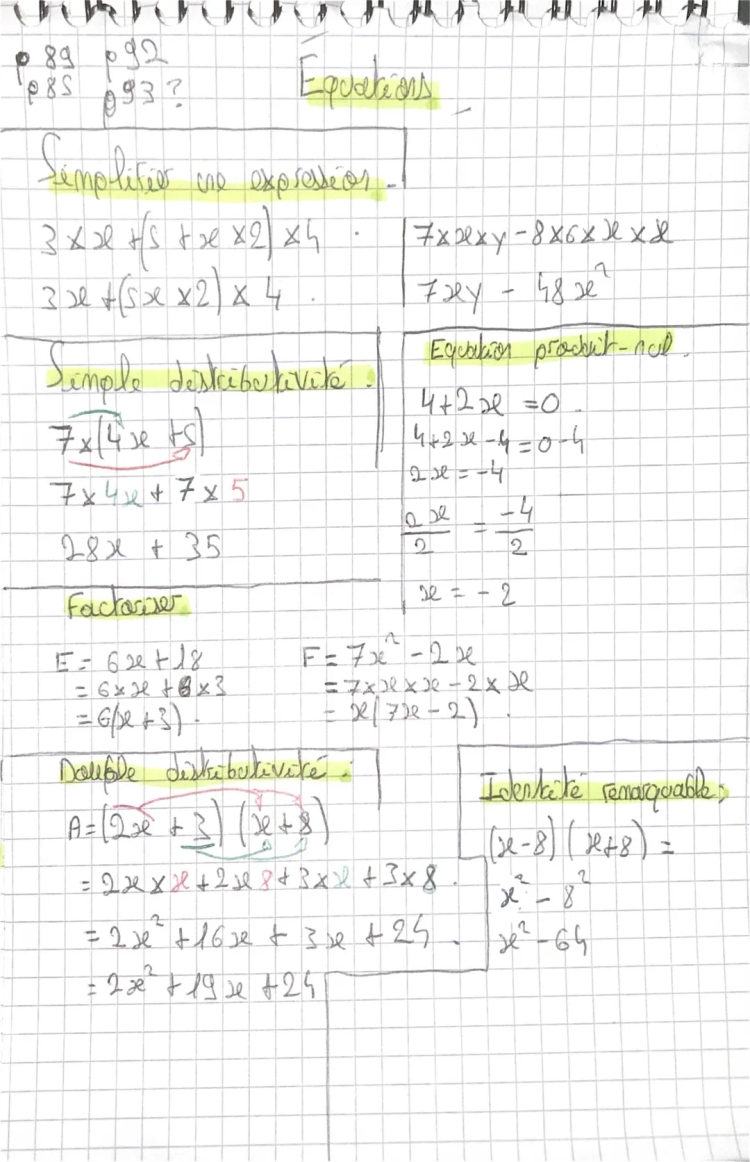 p 89 p 92
p 85 p 93 ?
Equations
Simplifier une expression.
3 × x + (5 + x × 2) × 4
3x + (5x × 2) × 4
7 × x × y - 8 × 6 × x × x
7xy - 48x²
Simple distributivité.
7 × (4x + 5)
7 × 4x + 7 × 5
28x + 35
Equation produit-nul.
4 + 2x = 0
4 + 2x - 4 = 0 - 4
2x = -4
2x/2 = -4/2
x = -2
Factoriser
E = 6x + 18
= 6 × x + 6 × 3
= 6(x + 3).
F = 7x² - 2x
= 7 × x × x - 2 × x
= x(7x - 2).
Double distributivité.
A = (2x + 3) (x + 8)
= 2x × x + 2x 8 + 3 × x + 3 × 8.
= 2x² + 16x + 3x + 24.
= 2x² + 19x + 24
Identité remarquable;
(x - 8) (x + 8) =
x² - 8²
x² - 64